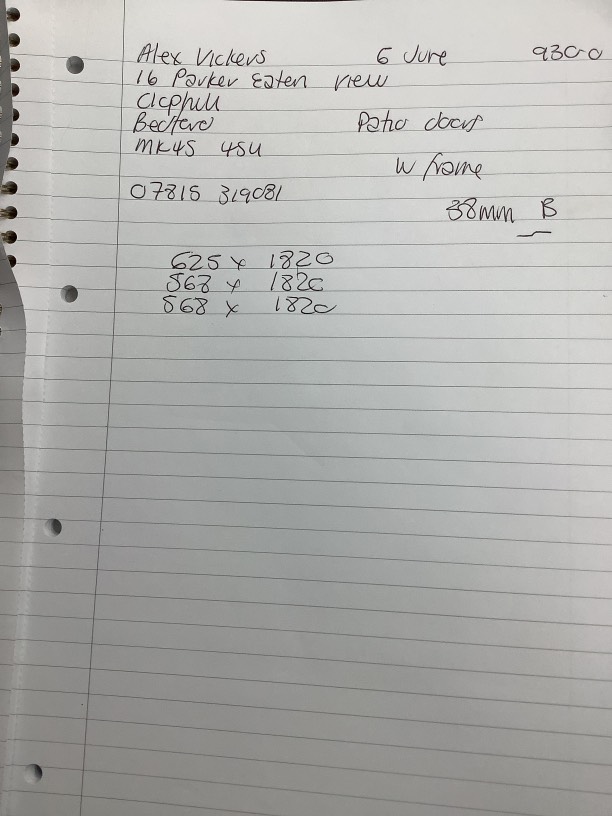 Alex Vickers 6 June 9300
16 Parker Eaten view
Clophill
Bedford
Patio doors
MK45 4SU
W frame
07815 319081
38mm B
625 x 1820
568 x 1820
568 x 1820